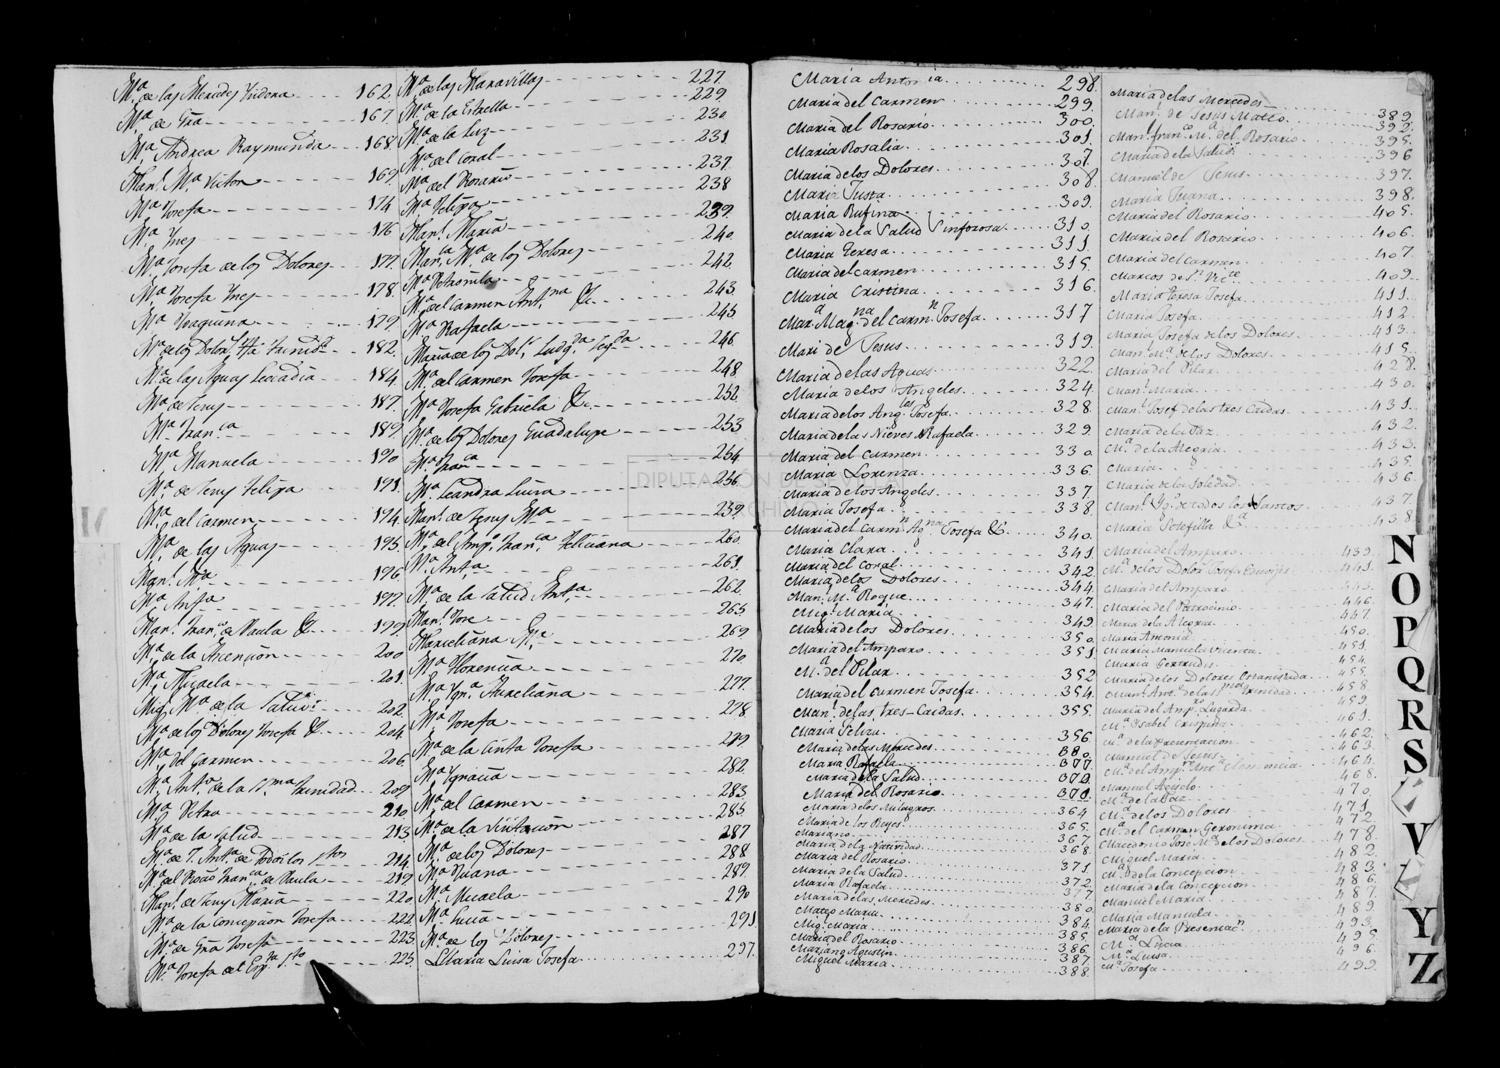 Mª de las Mercedes Ysidora 162.
Mª de Gra 167.
Mª Andrea Raymunda 168.
Manl. Mª Victor 169.
Mª Josefa 174
Mª Ynes 176
Mª Josefa de los Dolores 177.
Mª Josefa Ynes 178.
Mª Joaquina 179.
Mª de los Dolors. 182.
Mª de las Aguas Leocadia 184.
Mª de Jesus 187.
Mª Franca 189.
Mª Manuela 190
Mª de Jesus Felipa 191.
Mª del Carmen 194.
Mª de las Aguas 195.
Manl. Mª 196.
Mª Anta 197.
Manl. Franco de Paula &. 199.
Mª de la Ascencion 200
Mª Micaela 201.
Migl. Mª de la 202.
Mª de los Dolores Josefa &. 204.
Mª del Carmen 206.
Mª Anta de la Sma Trinidad 209
Mª Petra 210.
Mª de la Salud 213.
Mª de J. Anta de Todos los Stos 214.
Mª del Rosario Franca de Paula 219.
Manl. de Jesus Maria 220.
Mª de la Concepcion Josefa 222.
Mª de Gra Josefa 223.
Mª Josefa del Espta Sto 225.
Mª de las Maravillas 227.
Mª de la Estrella 229.
Mª de la Luz 230
Mª del Coral 231
Mª del Rosario 237.
Mª Felipa 238
Manl. Maria 239.
Manla Mª de los Dolores 240
Mª Petronila 242.
Mª del Carmen Antna &. 243.
Mª Rafaela 245
Maria de los Dols. 246.
Mª del Carmen Josefa 248
Mª Josefa Gabriela &. 252.
Mª de los Dolores Guadalupe 253
Mª Franca 254
Mª Leandra Luisa 256.
Manl. de Jesus Mª 259.
Mª del Ampo Franca Feliciana 260.
Mª Anta 261.
Mª de la Salud Anta 262.
Manl. Jose 265
Marceliana 269
Mª Florencia 270
Mª Aureliana 277.
Mª Josefa 278.
Mª de la Cinta Josefa 279
Mª Ygnacia 282.
Mª del Carmen 283
Mª de la Visitacion 285
Mª de los Dolores 287
Mª Juana 288
Mª Micaela 289.
Mª Lucia 290
Mª de los Dolores 291
Maria Luisa Josefa 297.
Maria Antonia 298.
Maria del Carmen 299.
Maria del Rosario 300.
Maria Rosalia 301.
Maria de los Dolores 307.
Maria Justa 308.
Maria Rufina 309.
Maria de la Salud Sinforosa 310.
Maria Teresa 311.
Maria del Carmen 315.
Maria Cristina 316.
Mara Magna del Carmn Josefa 317
Mari de Jesus 319.
Maria de las Aguas 322.
Maria de los Angeles 324
Maria de los Angles Josefa 328.
Maria de las Nieves Rafaela 329.
Maria del Carmen 330
Maria Lorenza 336.
Maria de los Angeles 337.
Maria Josefa 338
Maria del Carmn Josefa &. 340.
Maria Clara 341
Maria del Coral 342
Maria de los Dolores 344
Manl. Mª Roque 347.
Migl. Maria 349
Maria de los Dolores 350.
Maria del Amparo 351
Mª del Pilar 352
Maria del Carmen Josefa 354.
Manl. de las tres-Caidas 355.
Maria Feliza 356
Maria de las Mercedes
Maria Rafaela 377.
Maria de la Salud 370.
Maria del Rosario 370.
Maria de los Milagros 364
Maria de los Reyes 365.
Mariano 367.
Maria de la Natividad 368
Maria del Rosario 371
Maria de la Salud 372.
Maria Rafaela 377.
Maria de las Mercedes 380.
Mateo Maria 384.
Migl. Maria 385.
Maria del Rosario 386.
Mariano Agustin 387.
Miguel Maria 388.
Maria de las Mercedes 389.
Manl. de Jesus Mateo 392.
Manl. Franco Mª del Rosario 395.
Maria de la Salud 396
Manuel de Jesus 397.
Maria Juana 398.
Maria del Rosario 405.
Maria del Rosario 406.
Maria del Carmen 407.
Marcos de Sn Victe 409.
Maria Teresa Josefa 411.
Maria Josefa 412.
Maria Josefa de los Dolores 413.
Manl. Mª de los Dolores 415.
Maria del Pilar 428.
Manl. Maria 430.
Manl. Josef de las tres Caidas 431.
Maria de la Paz 432.
Mª de la Alegria 433.
Maria 435.
Maria de la Soledad 436.
Manl. Ygo de todos los Santos 437.
Maria Josefita &ª 438.
Maria del Amparo 439.
Mª de los Dolors Josefa 441.
Maria del Amparo
Maria del Patrocinio 446.
Maria de la Alegria 447.
Maria Antonia 450.
Maria Manuela Vicenta 451.
Maria Gertrudis 454.
Maria de los Dolores 455.
Manl. Anto de la Sma Trinidad 458.
Maria del Ampro Lugarda 459.
Mª Isabel Crispula 461.
Mª de la Presentacion 462.
Manuel de Jesus 463.
Mª del Ampo 464.
Manuel Acisclo 468.
Mª de la Paz 470.
Mª de los Dolores 471.
Mª del Carmen Geronima 472.
Macedonio Jose Mª de los Dolores 478.
Miguel Maria 482.
Mª de la Concepcion 483.
Maria de la Concepcion 486.
Manuel Maria 487.
Maria Manuela 489.
Maria de la Presentacn 493.
Mª Lucia 495.
Mª Luisa 496.
Mª Josefa 499.
N
O
P
Q
R
S
V
Y
Z
DIPUTACIÓN DE SEVILLA
ARCHIVO